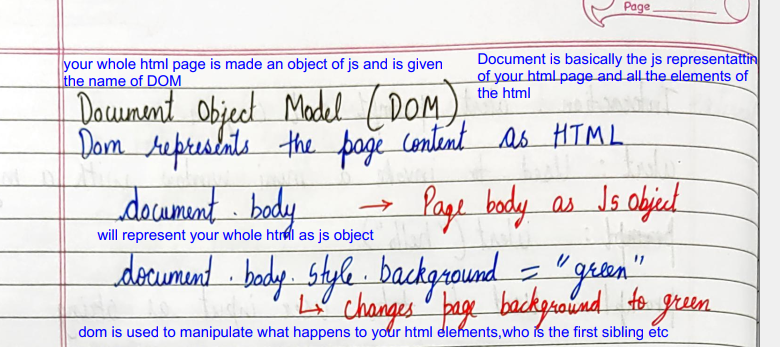 Page
your whole html page is made an object of js and is given
the name of DOM
Document is basically the js representattin
of your html page and all the elements of
the html
Document Object Model (DOM)
Dom represents the page content as HTML
document . body → Page body as Js object
will represent your whole html as js object
document . body . style . background = "green"
↳ changes page background to green
dom is used to manipulate what happens to your html elements,who is the first sibling etc